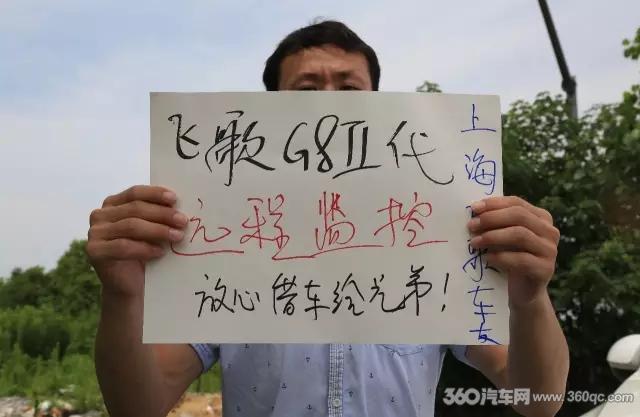 飞歌G8Ⅱ代
远程监控
放心借车给兄弟!
上海 歌车友
360汽车网 www.360qc.com